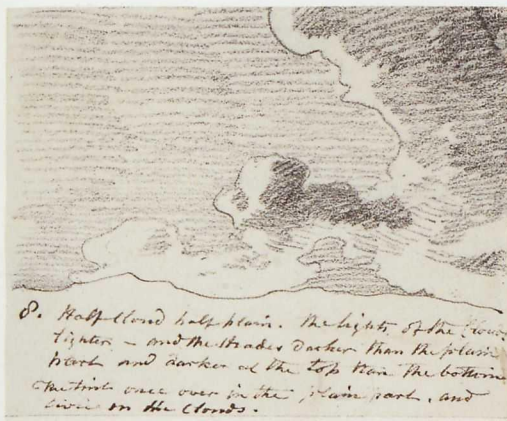 8. Half Cloud half plain. the lights of the Clouds
lighter – and the shades darker than the plain
part and darker at the top than the bottom
The tint once over in the plain part. and
twice in the Clouds.